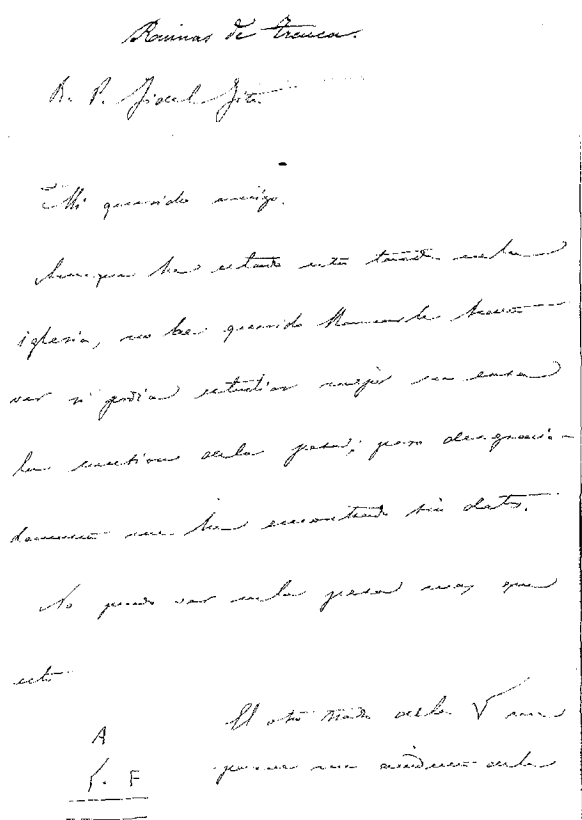 Ruinas de
R. P. Fidel Fita
Mi querido amigo.
Aunque he estado esta tarde en la
iglesia, no he querido hasta
ver si podia estudiar mejor en casa
la cuestion de la pesa; pero desgracia-
damente me he encontrado sin datos.
No puedo ver en la pesa mas que
esto
El otro trazo de la V me
A
parece un de la
V. F